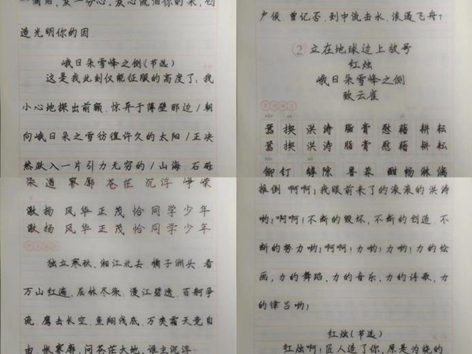 造光明你的因
峨日朵雪峰之侧(节选)
这是我此刻仅能征服的高度了:我
小心地探出前额,惊异于薄壁那边/朝
向峨日朵之雪彷徨许久的太阳/正决
然跃入一片引力无穷的/山海 石砾
户侯。曾记否,到中流击水,浪遏飞舟?
② 立在地球边上放号
红烛
峨日朵雪峰之侧
致云雀
洪涛 脂膏 慰藉 耕耘
铆钉
寥廓 苍茫 沉浮 峥嵘
风华正茂 恰同学少年
风华正茂 恰同学少年
独立寒秋,湘江北去,橘子洲头 看
万山红遍,层林尽染;漫江碧透,百舸争
流。鹰击长空,鱼翔浅底,万类霜天竞自
由。怅寥廓,问苍茫大地,谁主沉浮
推倒 啊啊!我眼前来了的滚滚的洪涛
哟!啊啊!不断的毁坏,不断的创造,不
断的努力哟!啊啊!力哟!力哟!力的绘
画,力的舞蹈,力的音乐,力的诗歌,力
的律吕哟!
红烛(节选)
红烛啊!匠人造了你,原是为烧的